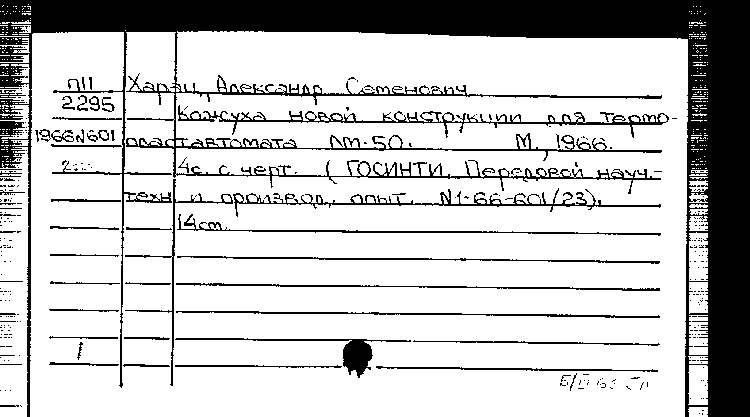 П11 Харац, Александр Семенович
2295 Кожуха новой конструкции для термо-
1966N601 пластавтомата ЛМ-50. М., 1966.
4с. с черт. (ГОСИНТИ. Передовой науч.-
техн и производ. опыт. N1-66-601/23).
14см.
1